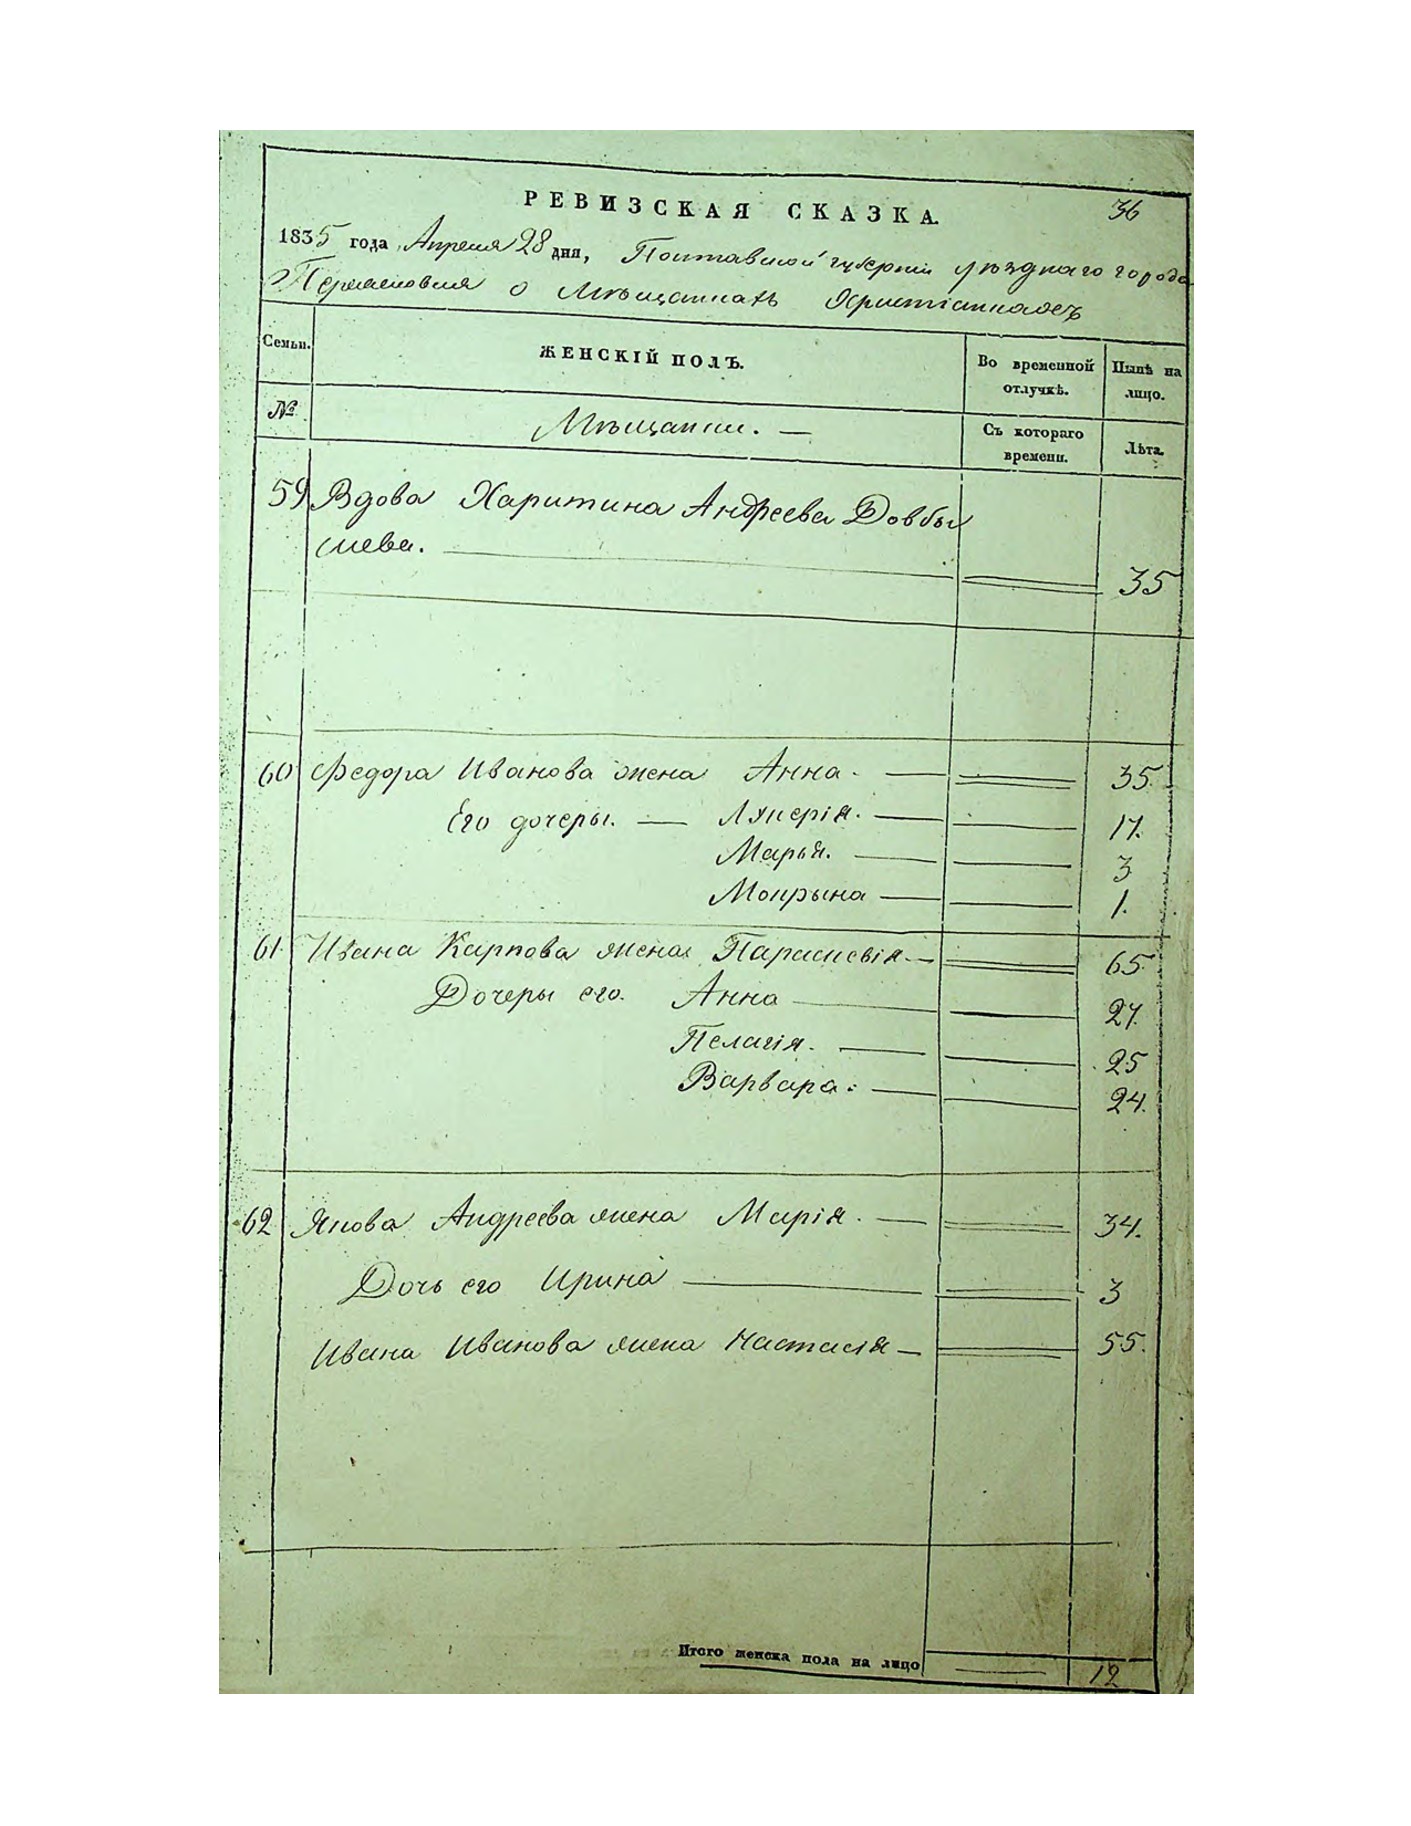 РЕВИЗСКАЯ СКАЗКА.
36
1835 года Апреля 28 дня, Полтавской губерніи уѣзднаго города
о Мѣщанахъ Христіанахъ
Семьи.
ЖЕНСКІЙ ПОЛЪ.
Во временной отлучкѣ.
Нынѣ на лицо.
№
Мѣщанки. —
Съ котораго времени.
Лѣта.
59 Вдова Харитина Андреева Довбы
шева. — 35
60 Федора Иванова жена Анна. — 35.
Его дочеры. — Лукерія. — 17.
Марья. — 3
Мокрына — 1.
61 Ивана Карпова жена Параскевія. — 65.
Дочеры его. Анна — 27.
Пелагія. — 25
Варвара. — 24.
62 Якова Андреева жена Марія. — 34.
Дочь его Ирина — 3
Ивана Иванова жена Настасія — 55.
Итого женска пола на лицо 12